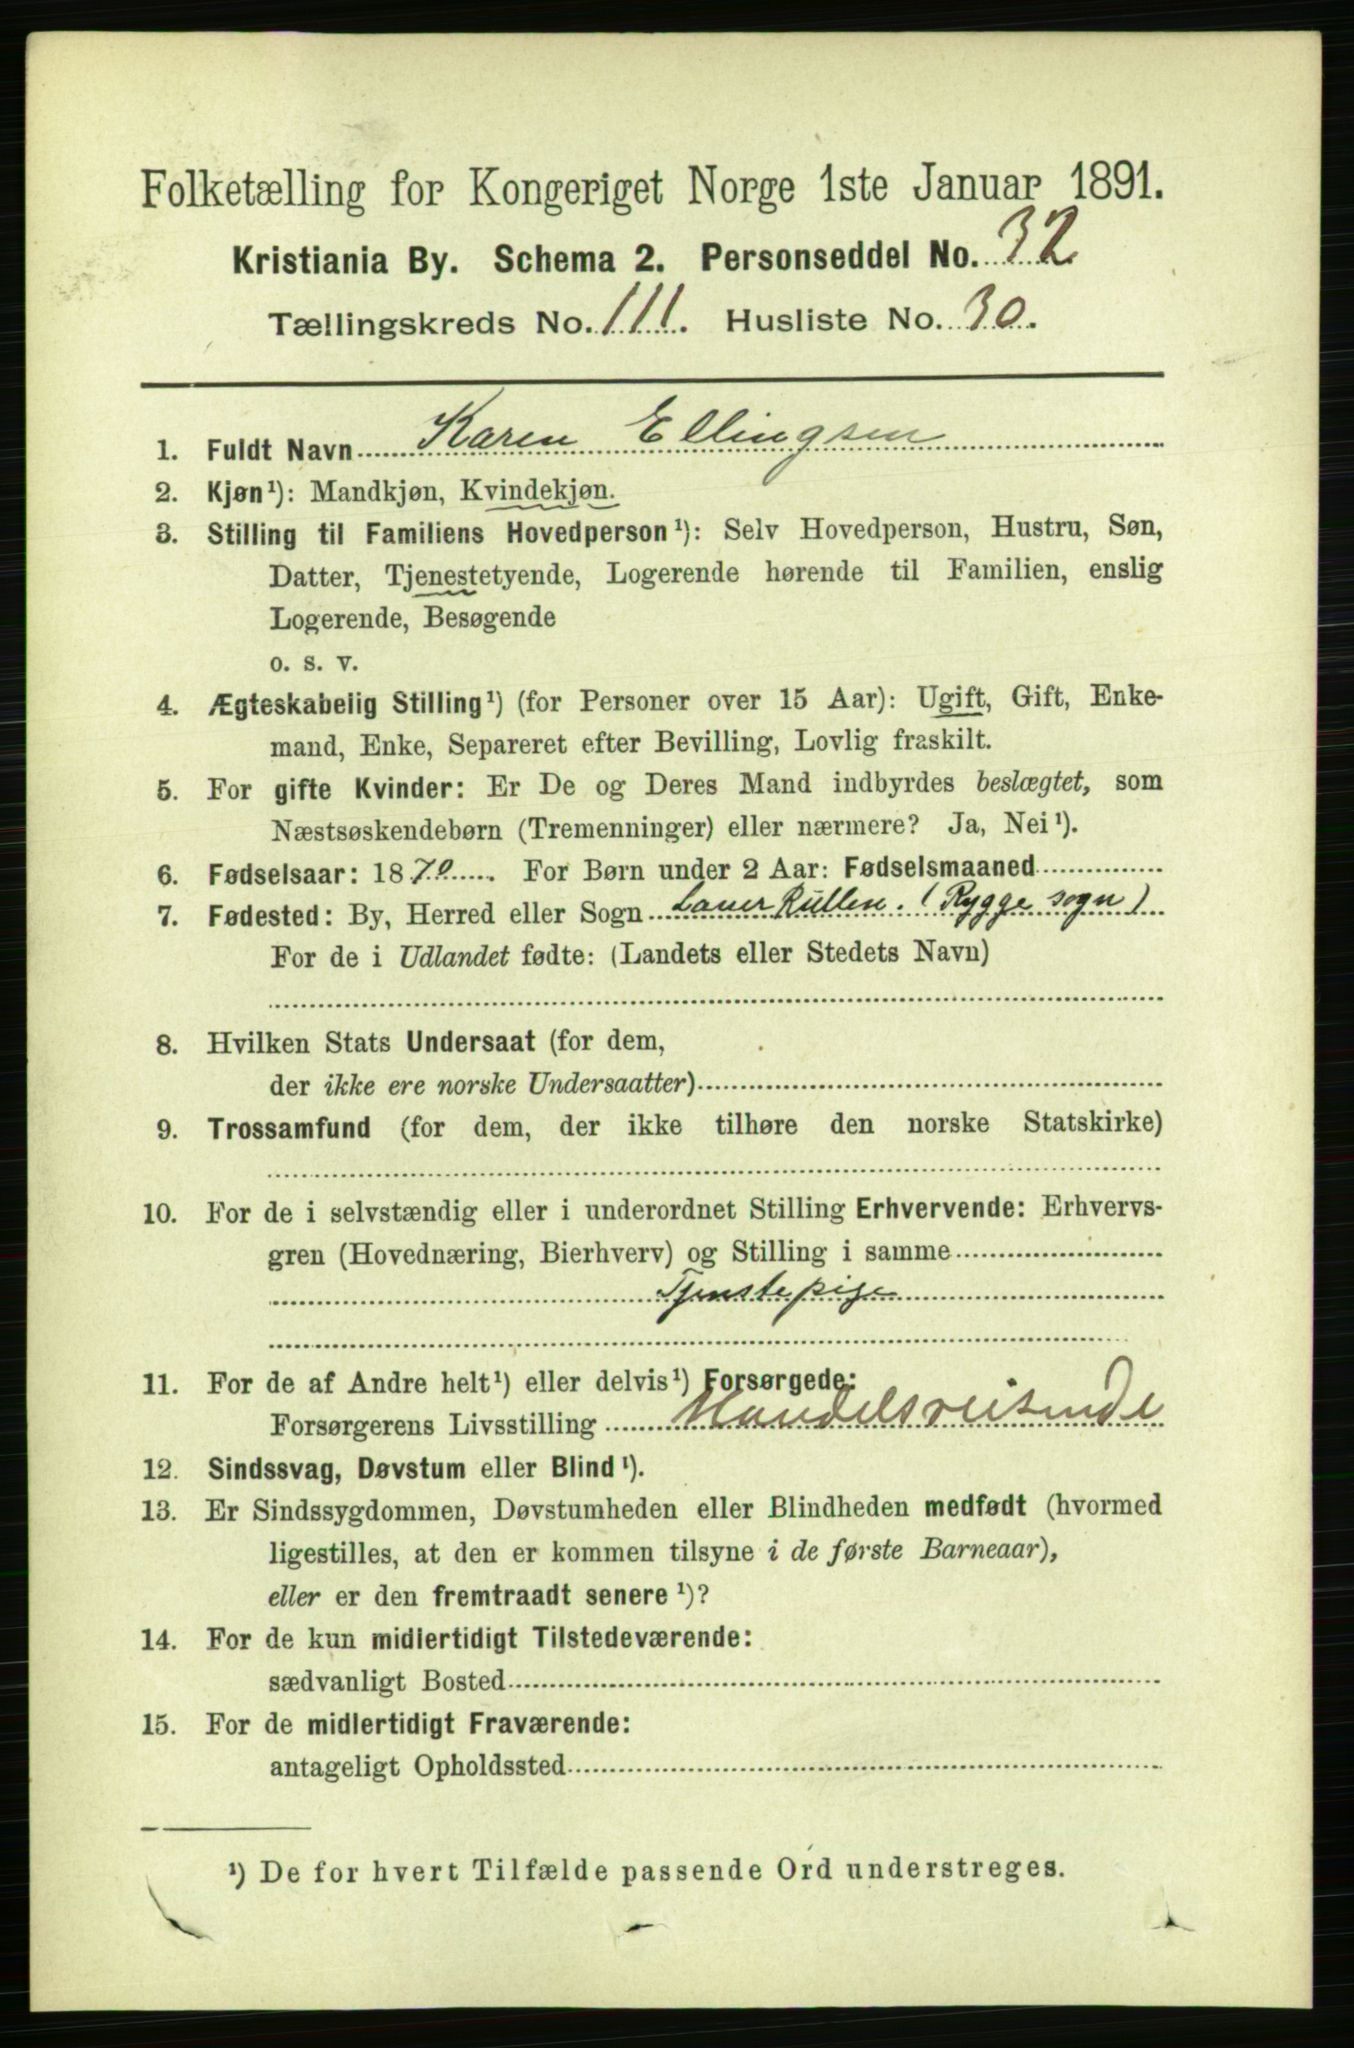 Folketælling for Kongeriget Norge 1ste Januar 1891.
Kristiania By. Schema 2. Personseddel No. 32
Tællingskreds No. 111. Husliste No. 30.
1. Fuldt Navn Karen Ellingsen
2. Kjøn¹): Mandkjøn, Kvindekjøn.
3. Stilling til Familiens Hovedperson¹): Selv Hovedperson, Hustru, Søn,
Datter, Tjenestetyende, Logerende hørende til Familien, enslig
Logerende, Besøgende
o. s. v.
4. Ægteskabelig Stilling¹) (for Personer over 15 Aar): Ugift, Gift, Enke-
mand, Enke, Separeret efter Bevilling, Lovlig fraskilt.
5. For gifte Kvinder: Er De og Deres Mand indbyrdes beslægtet, som
Næstsøskendebørn (Tremenninger) eller nærmere? Ja, Nei¹).
6. Fødselsaar: 1870. For Børn under 2 Aar: Fødselsmaaned
7. Fødested: By, Herred eller Sogn (Rygge sogn)
For de i Udlandet fødte: (Landets eller Stedets Navn)
8. Hvilken Stats Undersaat (for dem,
der ikke ere norske Undersaatter)
9. Trossamfund (for dem, der ikke tilhøre den norske Statskirke)
10. For de i selvstændig eller i underordnet Stilling Erhvervende: Erhvervs-
gren (Hovednæring, Bierhverv) og Stilling i samme
Tjenstepige
11. For de af Andre helt¹) eller delvis¹) Forsørgede:
Forsørgerens Livsstilling Handelsreisende
12. Sindssvag, Døvstum eller Blind¹).
13. Er Sindssygdommen, Døvstumheden eller Blindheden medfødt (hvormed
ligestilles, at den er kommen tilsyne i de første Barneaar),
eller er den fremtraadt senere¹)?
14. For de kun midlertidigt Tilstedeværende:
sædvanligt Bosted
15. For de midlertidigt Fraværende:
antageligt Opholdssted
¹) De for hvert Tilfælde passende Ord understreges.